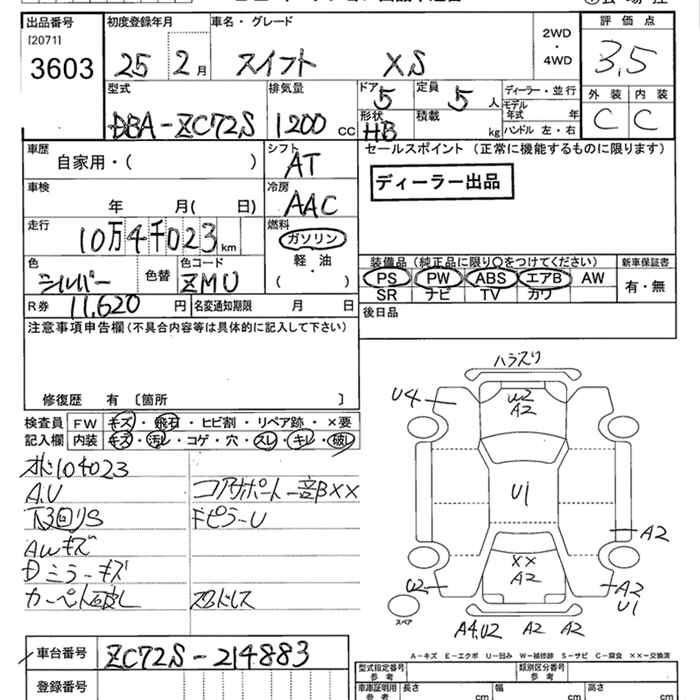 出品番号 初度登録年月 車名・グレード 評価点
[2071]
3603 25 2月 スイフト XS 2WD・4WD 3.5
型式 排気量 ドア 5 定員 5人 ディーラー・並行 外装 内装
DBA-ZC72S 1200cc 形状 HB 積載 kg モデル年式 年 C C
ハンドル 左・右
車歴 自家用・( ) シフト AT セールスポイント (正常に機能するものに限ります)
車検 年 月( 日) 冷房 AAC ディーラー出品
走行 10万4千023km 燃料 ガソリン・軽油・( )
色 シルバー 色替 色コード ZMU 装備品 (純正品に限り○をつけてください) 新車保証書
PS PW ABS エアB AW 有・無
SR ナビ TV カワ
R券 11,620円 名変通知期限 月 日 後日品
注意事項申告欄(不具合内容等は具体的に記入して下さい)
修復歴 有 〔箇所 〕
検査員記入欄 FW キズ・飛石・ヒビ割・リペア跡・×要
内装 キズ・汚レ・コゲ・穴・スレ・キレ・破レ
104023
A.U コアサポート一部××
下廻りS ピラーU
AWキズ
ミラーキズ
カーペット破レ
ハラスリ
U4 U2 A2
U1
A2
×× A2
U2 A2 U1
スペア
A4,U2 A2 A2
A-キズ E-エクボ U-凹み W-補修跡 S-サビ C-腐食 ××-交換済
車台番号 ZC72S-214883
登録番号
型式指定番号 参考 類別区分番号 参考
車庫証明用 参考 長さ cm 幅 cm 高さ cm